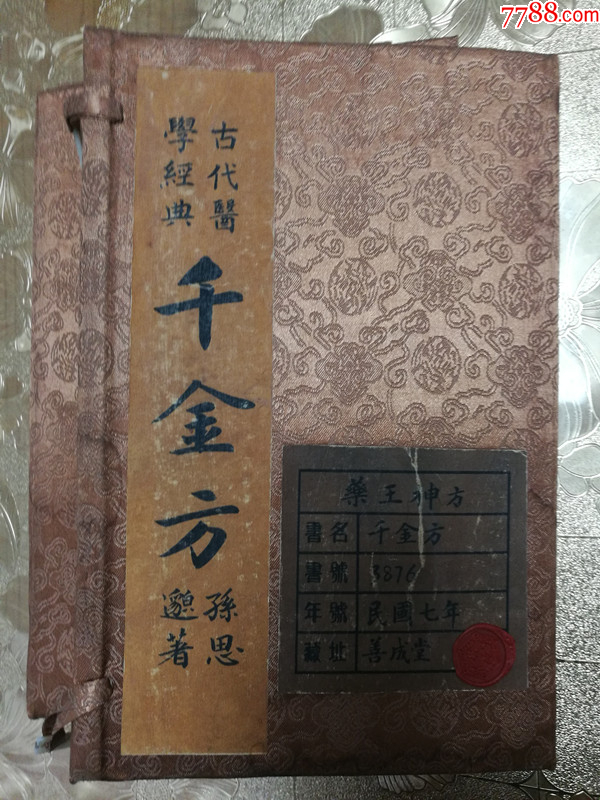 7788.com
古代醫
學經典
千金方
孫思
邈著
藥王神方
書名 千金方
書號 3876
年號 民國七年
藏址 善成堂